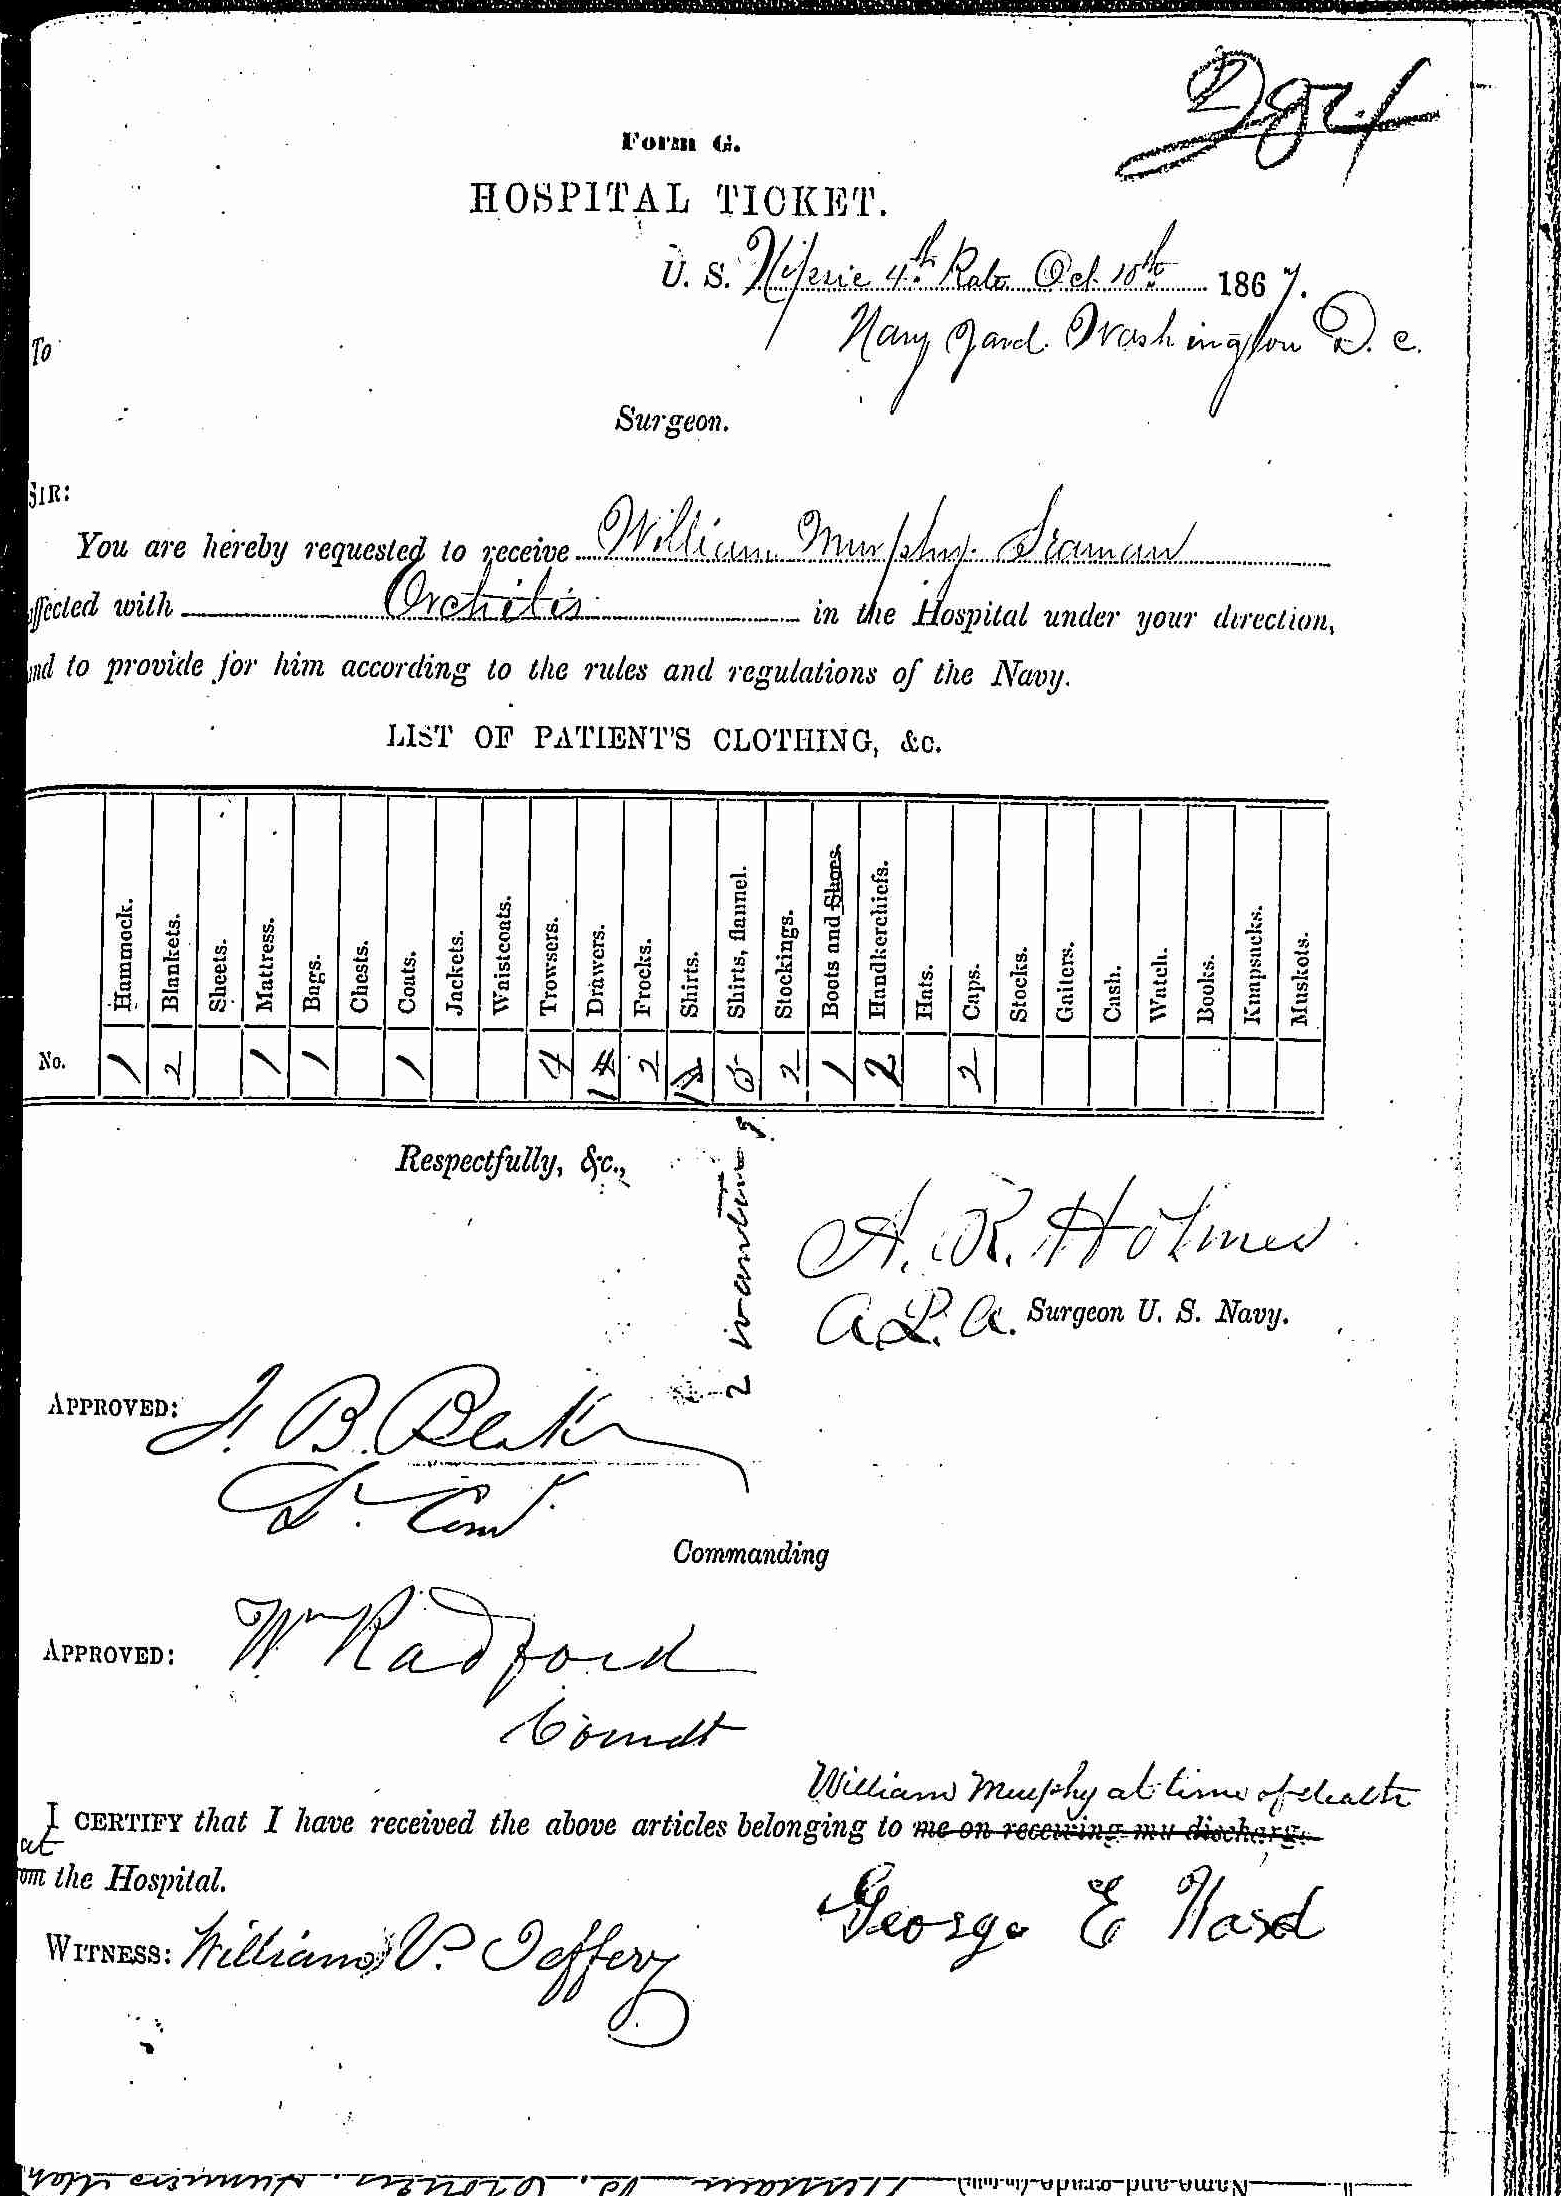 284
Form G.
HOSPITAL TICKET.
U. S. Nipsic 4th Rate Oct. 10th 1867.
Navy Yard Washington D. C.
To
Surgeon.
SIR:
You are hereby requested to receive William Murphy. Seaman
affected with Orchitis in the Hospital under your direction,
and to provide for him according to the rules and regulations of the Navy.
LIST OF PATIENT'S CLOTHING, &c.
Hammock. Blankets. Sheets. Mattress. Bags. Chests. Coats. Jackets. Waistcoats. Trowsers. Drawers. Frocks. Shirts. Shirts, flannel. Stockings. Boots and Shoes. Handkerchiefs. Hats. Caps. Stocks. Gaiters. Cash. Watch. Books. Knapsacks. Muskets.
No. 1 2 1 1 1 4 1 2 1 5 2 1 2 2
2 wanting
Respectfully, &c.,
A. R. Holmes
A. A. Surgeon U. S. Navy.
APPROVED: B. Blake
Lt. Com.
Commanding
APPROVED: Wm Radford
Comdt
William Murphy at time of death
I CERTIFY that I have received the above articles belonging to me on receiving my discharge
at
from the Hospital.
George E Ward
WITNESS: William V. Jeffery
Name and grade